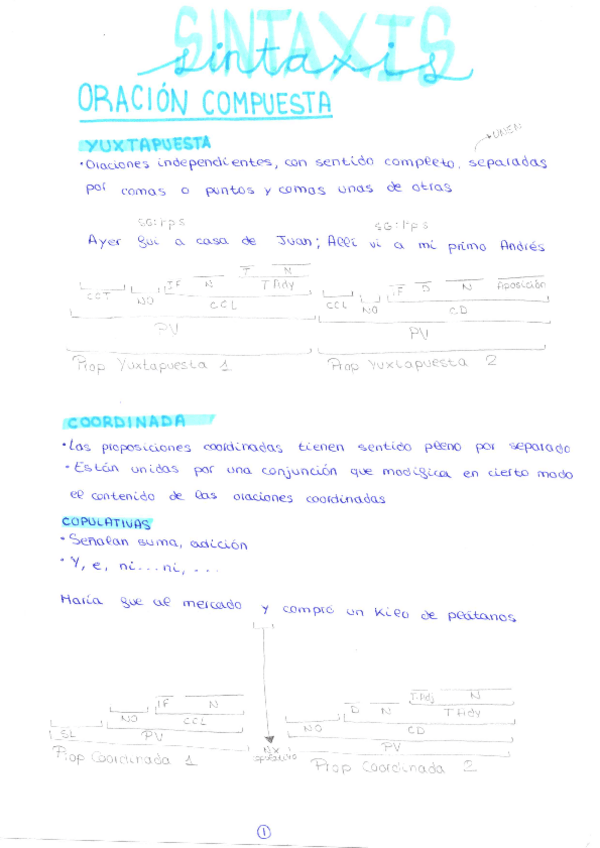 SINTAXIS
sintaxis
ORACIÓN COMPUESTA
YUXTAPUESTA
UNEN
•Oraciones independientes, con sentido completo, separadas
por comas o puntos y comas unas de otras
SG:1ªpS SG:1ªpS
Ayer fui a casa de Juan; Allí vi a mi primo Andrés
CCT NO IF N F N T Ady CCL CCL NO IF D N Aposición CD
PV PV
Prop Yuxtapuesta 1 Prop Yuxtapuesta 2
COORDINADA
•Las proposiciones coordinadas tienen sentido pleno por separado
•Están unidas por una conjunción que modifica en cierto modo
el contenido de las oraciones coordinadas
COPULATIVAS
•Señalan suma, adición
•Y, e, ni...ni, ...
María fue al mercado y compró un kilo de plátanos
IF N T.Ady N
NO CCL D N T Ady
SL PV NO CD
PV
Prop Coordinada 1 NX Prop Coordinada 2
1